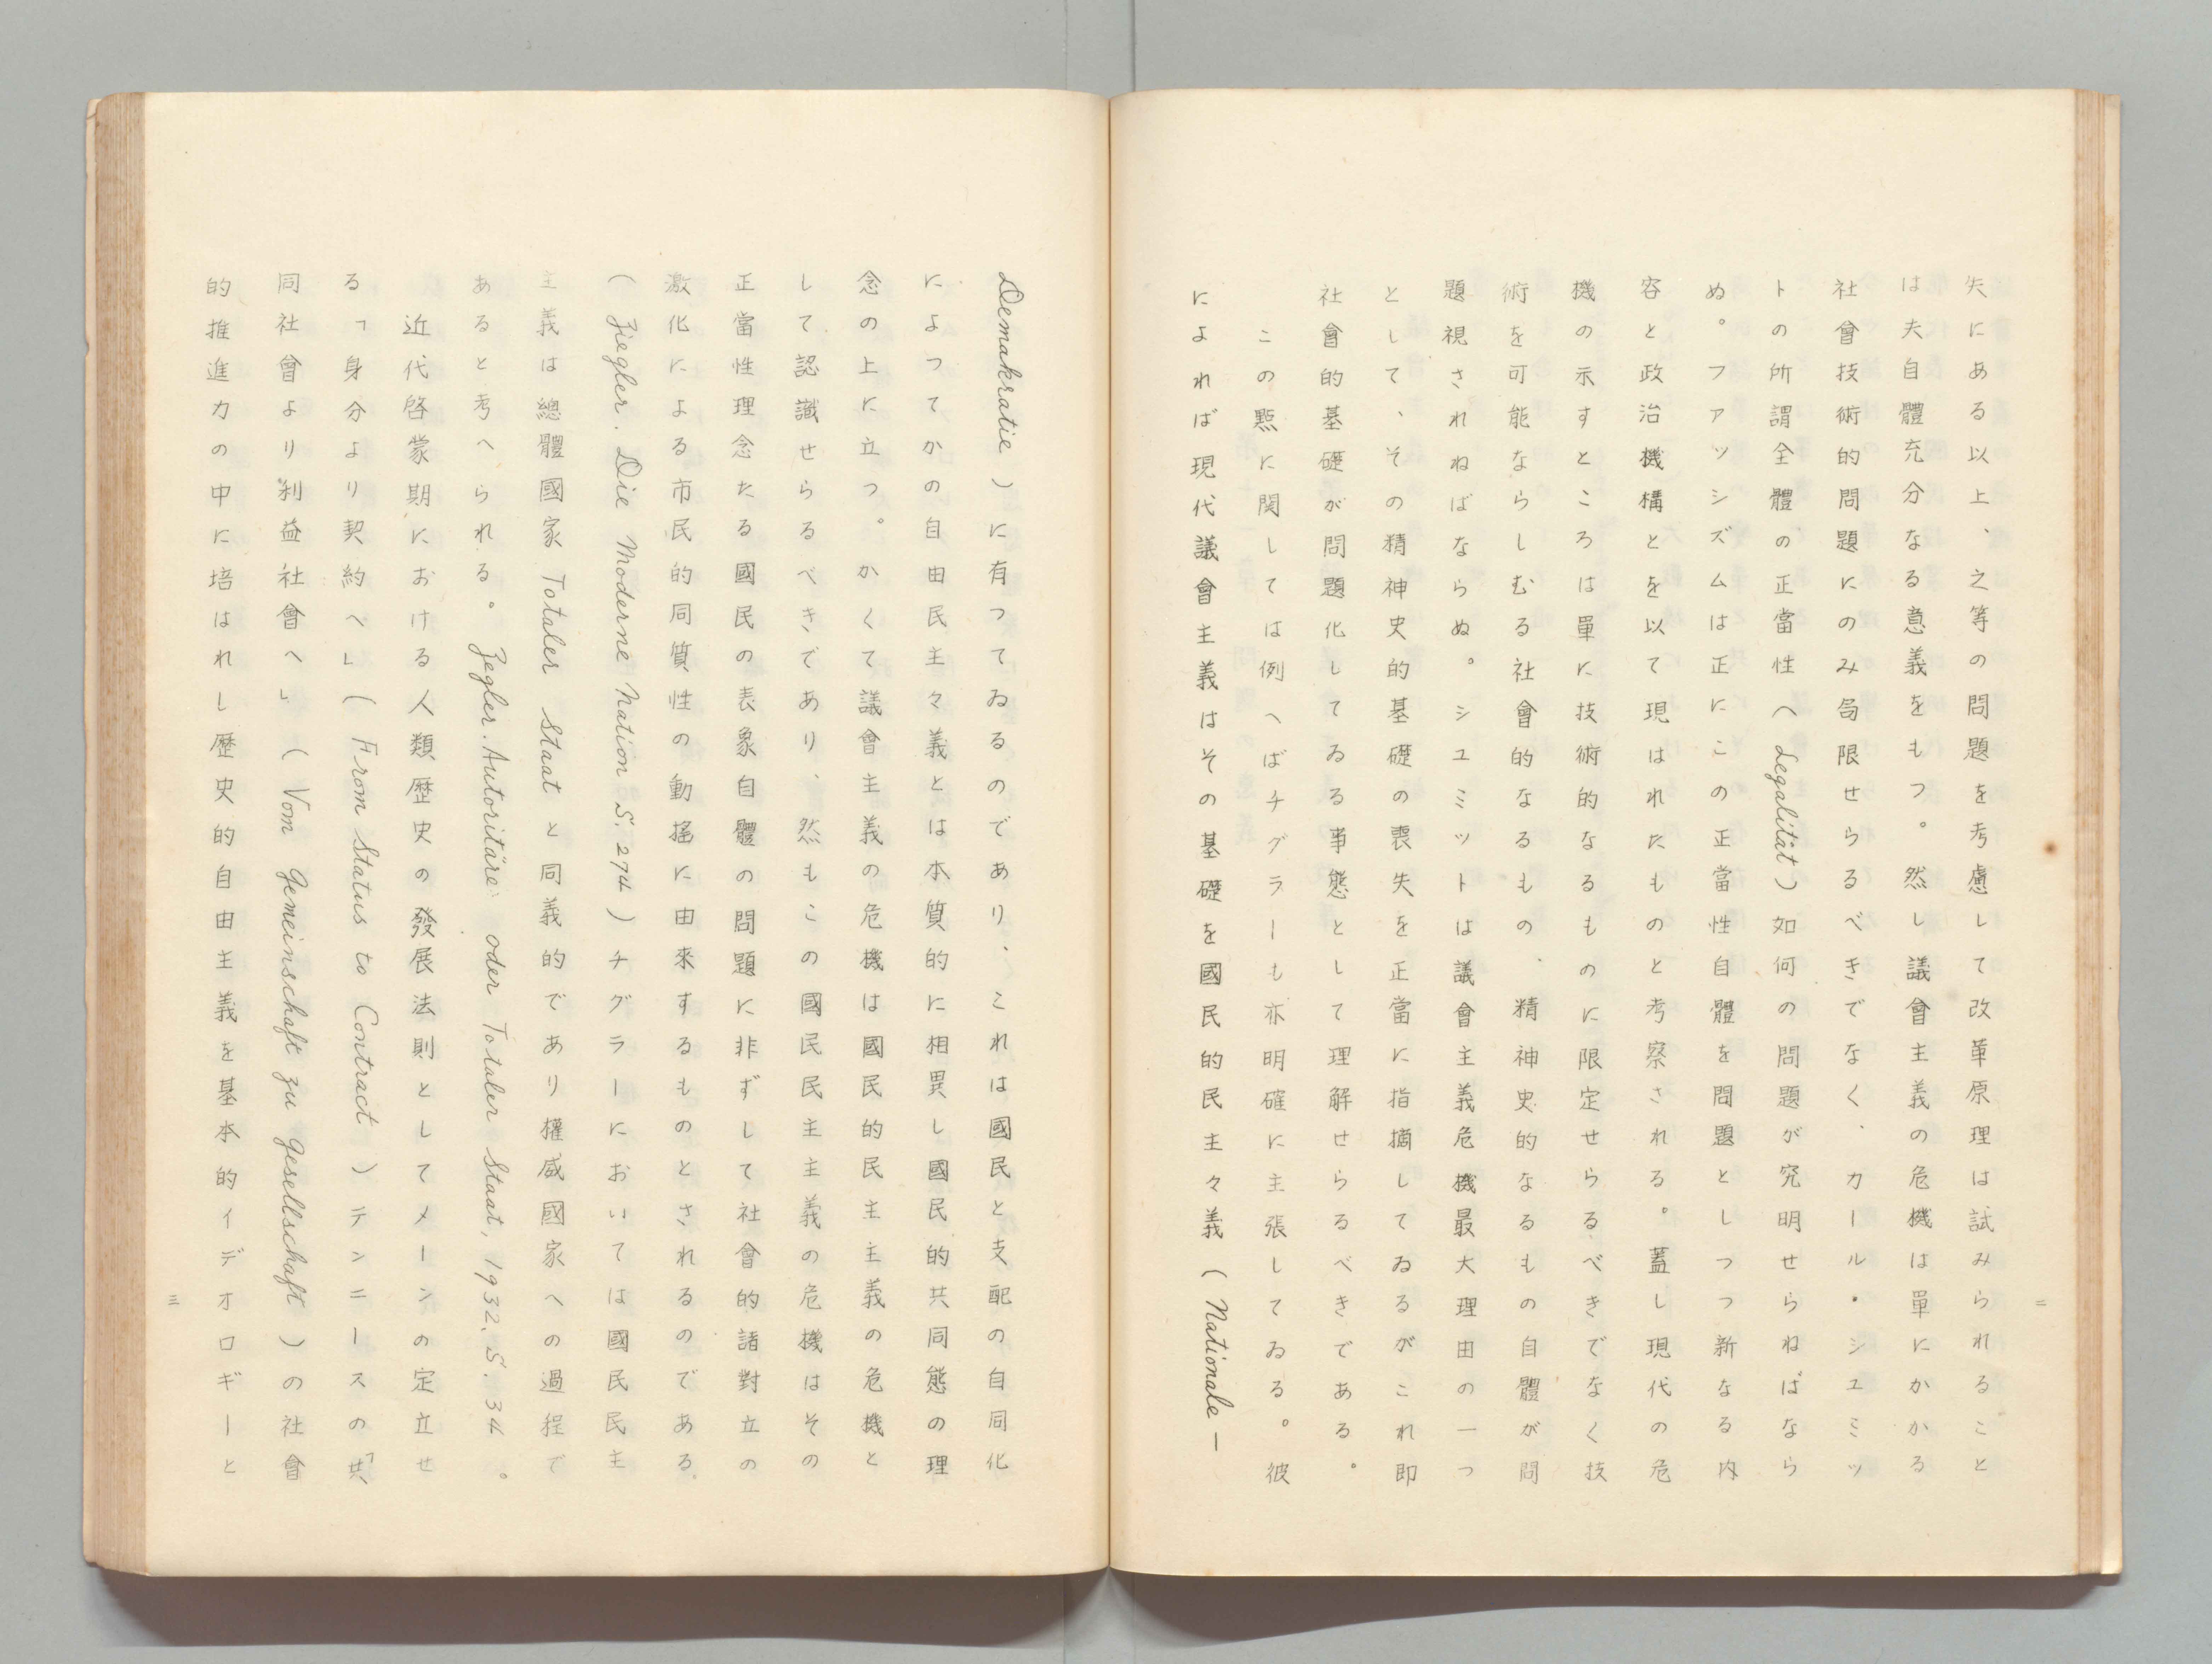 失にある以上、之等の問題を考慮して改革原理は試みられること
は夫自體充分なる意義をもつ。然し議會主義の危機は單にかかる
社會技術的問題にのみ局限せらるべきでなく、カール・シユミッ
トの所謂全體の正當性（Legalität）如何の問題が究明せられねばなら
ぬ。ファッシズムは正にこの正當性自體を問題としつつ新なる内
容と政治機構とを以て現はれたものと考察される。蓋し現代の危
機の示すところは單に技術的なるものに限定せらるべきでなく技
術を可能ならしむる社會的なるもの、精神史的なるもの自體が問
題視されねばならぬ。シユミットは議會主義危機最大理由の一つ
として、その精神史的基礎の喪失を正當に指摘してゐるがこれ即
社會的基礎が問題化してゐる事態として理解せらるべきである。
この點に関しては例へばチグラーも亦明確に主張してゐる。彼
によれば現代議會主義はその基礎を國民的民主々義（Nationale—
二
Demakratie）に有つてゐるのであり、これは國民と支配の自同化
によつてかの自由民主々義とは本質的に相異し國民的共同態の理
念の上に立つ。かくて議會主義の危機は國民的民主主義の危機と
して認識せらるべきであり、然もこの國民民主主義の危機はその
正當性理念たる國民の表象自體の問題に非ずして社會的諸對立の
激化による市民的同質性の動搖に由來するものとされるのである、
（Ziegler. Die Moderne Nation S. 274）チグラーにおいては國民民主
主義は總體國家 Totaler Staat と同義的であり權威國家への過程で
あると考へられる。Zegler. Autoritäre oder Totaler Staat, 1932, S. 34。
近代啓蒙期における人類歴史の發展法則としてメーンの定立せ
る「身分より契約へ」（From Status to Contract）テンニースの「共
同社會より利益社會へ」（Vom Gemeinschaft zu Gesellschaft）の社會
的推進力の中に培はれし歴史的自由主義を基本的イデオロギーと
三